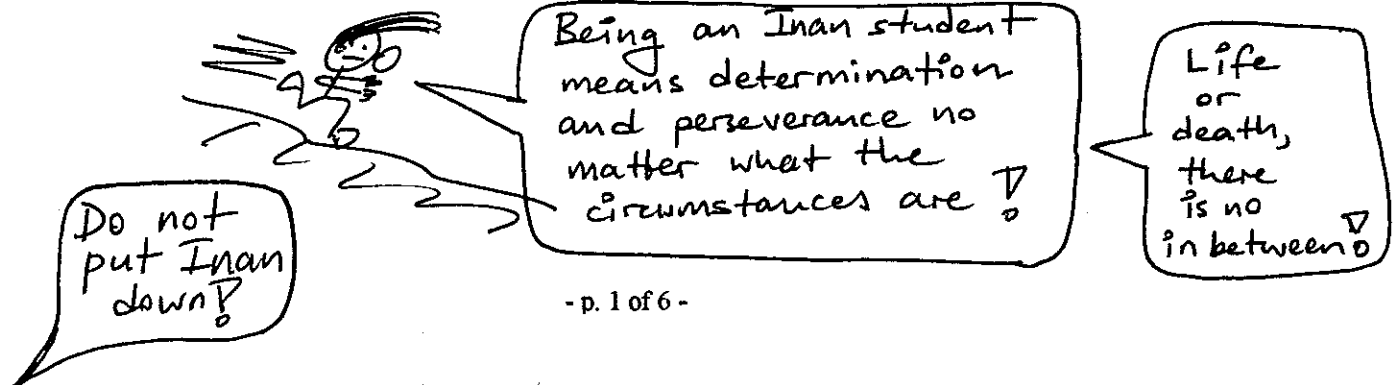 Being an Inan student
means determination
and perseverance no
matter what the
circumstances are !
Life
or
death,
there
is no
in between!
Do not
put Inan
down!
- p. 1 of 6 -